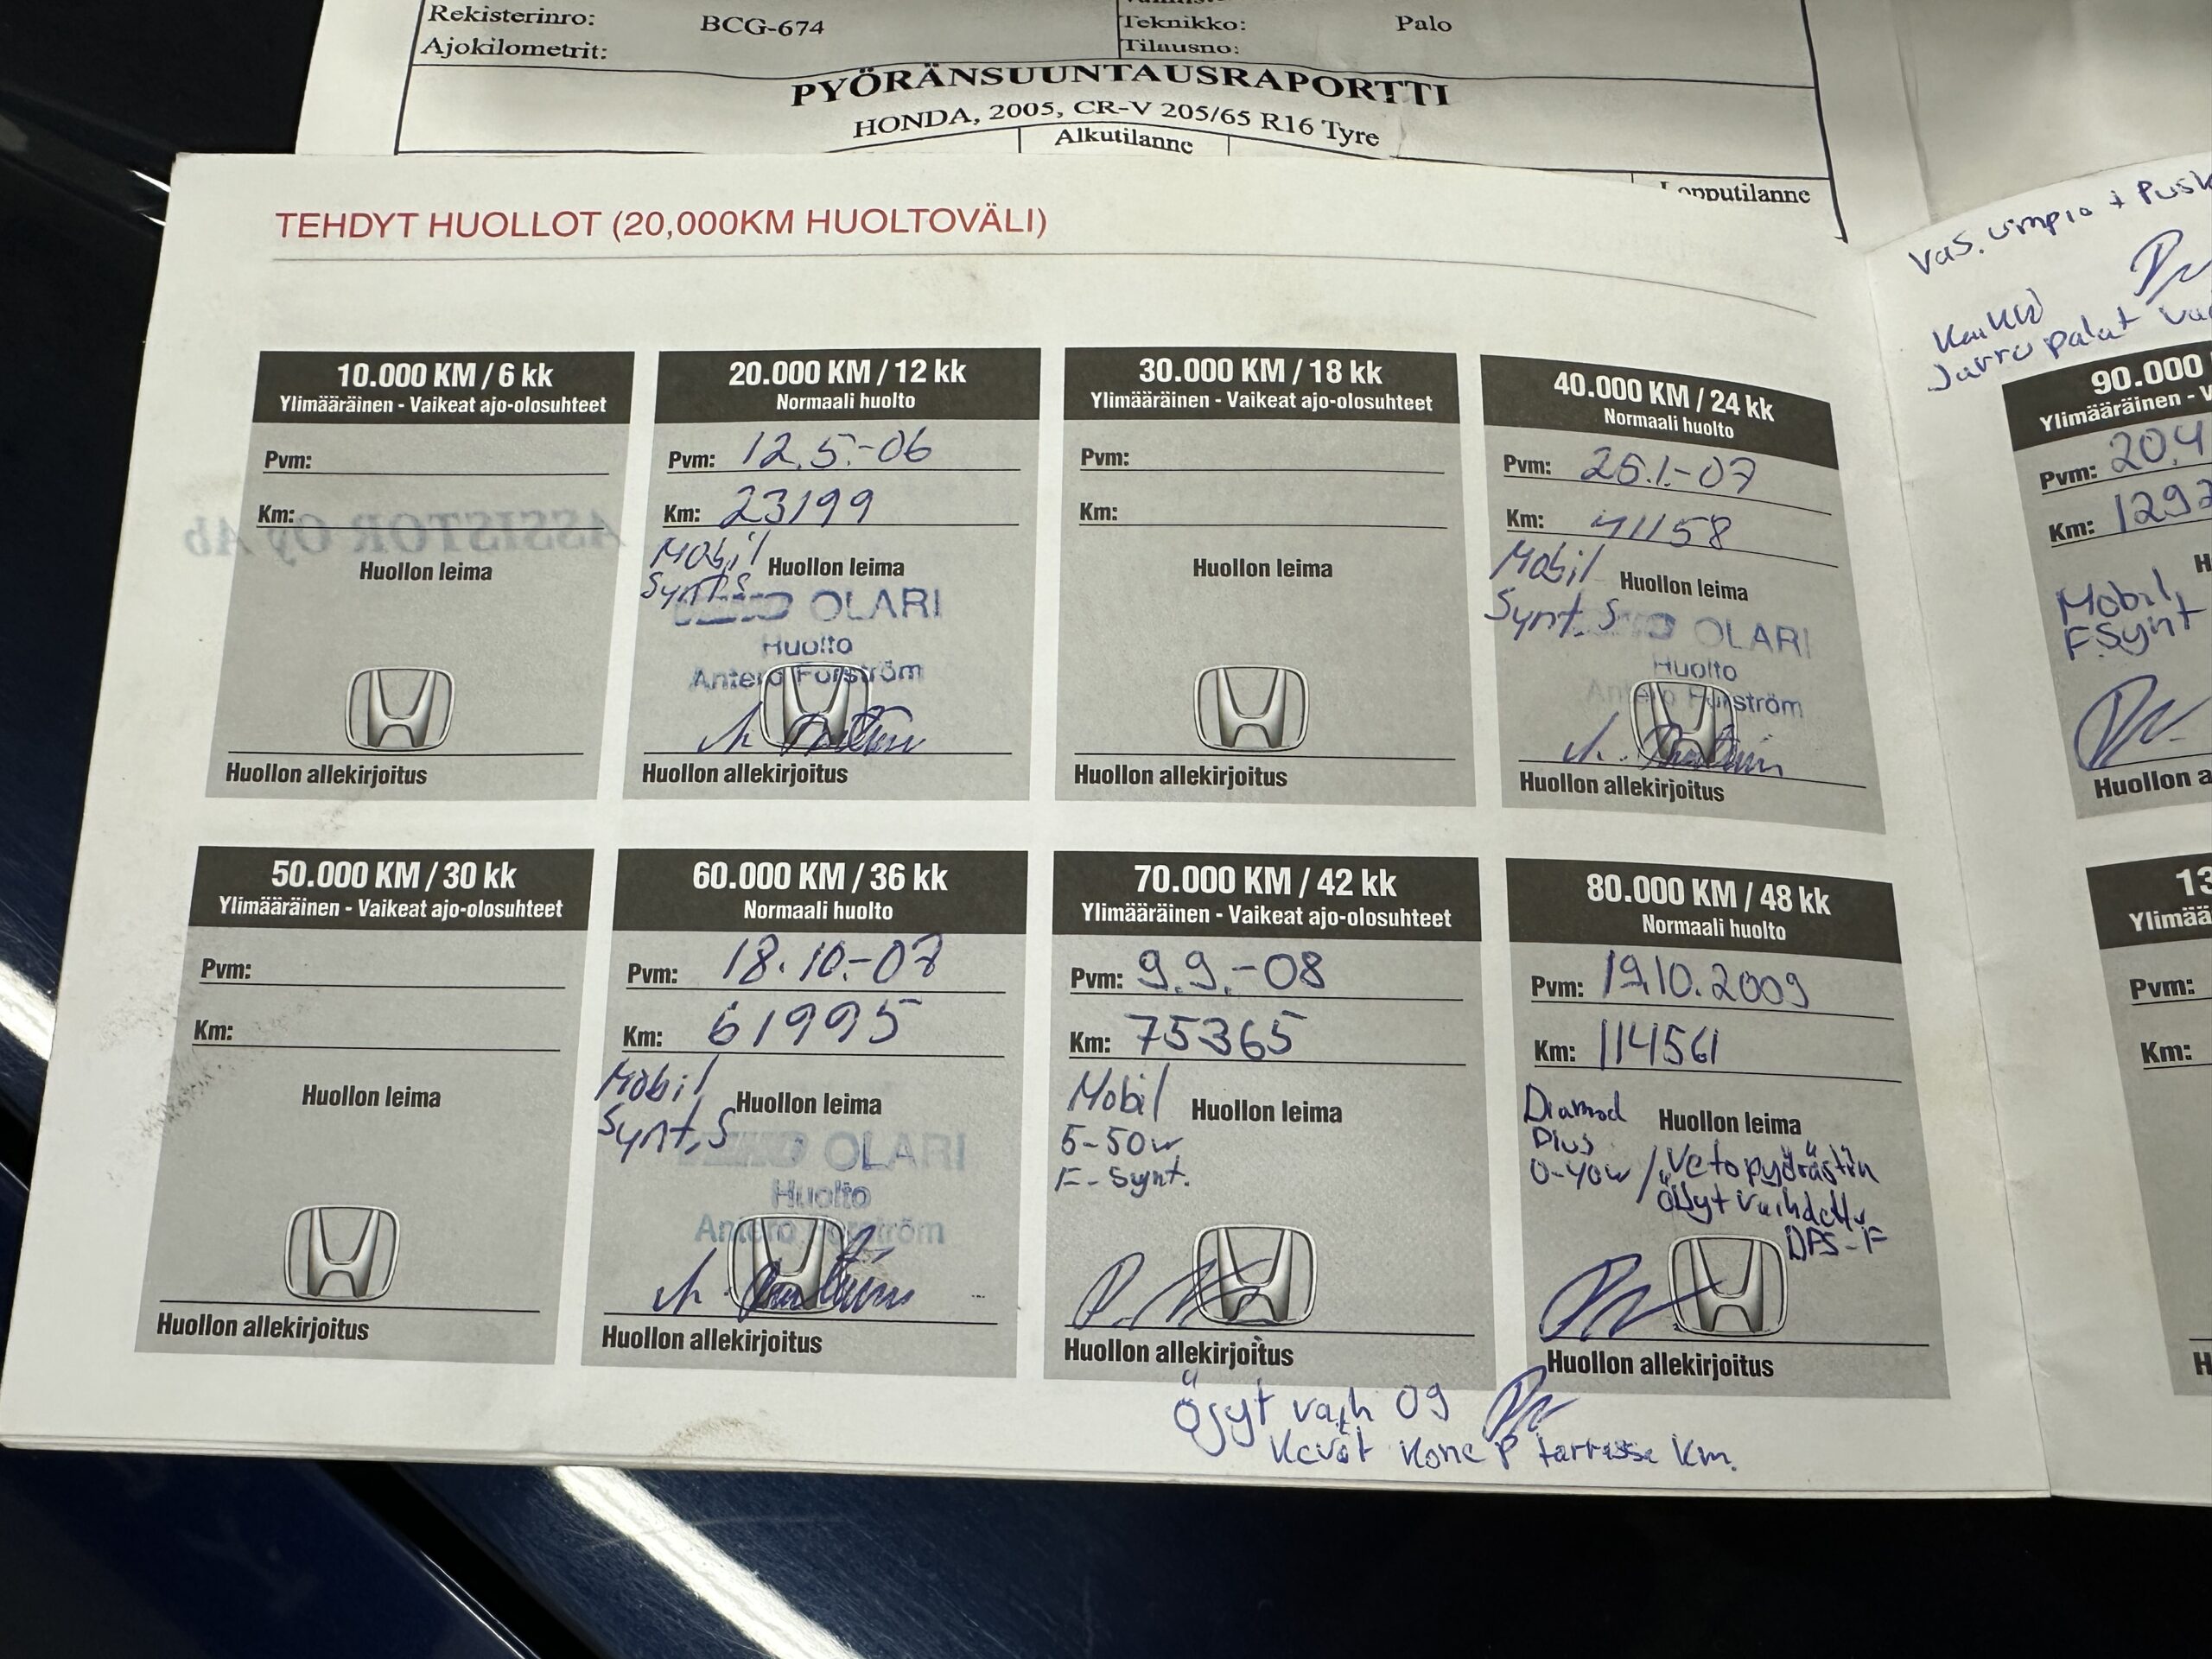 Rekisterinro: BCG-674
Ajokilometrit:
Teknikko: Palo
Tilausno:
PYÖRÄNSUUNTAUSRAPORTTI
HONDA, 2005, CR-V 205/65 R16 Tyre
Alkutilanne
Lopputilanne
TEHDYT HUOLLOT (20,000KM HUOLTOVÄLI)
10.000 KM / 6 kk
Ylimääräinen - Vaikeat ajo-olosuhteet
Pvm:
Km:
ASSISTOR Oy Ab
Huollon leima
Huollon allekirjoitus
20.000 KM / 12 kk
Normaali huolto
Pvm: 12.5.-06
Km: 23199
Mobil
Synt.S
Huollon leima
OLARI
Huolto
Antero Forström
Huollon allekirjoitus
30.000 KM / 18 kk
Ylimääräinen - Vaikeat ajo-olosuhteet
Pvm:
Km:
Huollon leima
Huollon allekirjoitus
40.000 KM / 24 kk
Normaali huolto
Pvm: 25.1.-07
Km: 41158
Mobil
Synt. S
Huollon leima
OLARI
Huolto
Antero Forström
Huollon allekirjoitus
50.000 KM / 30 kk
Ylimääräinen - Vaikeat ajo-olosuhteet
Pvm:
Km:
Huollon leima
Huollon allekirjoitus
60.000 KM / 36 kk
Normaali huolto
Pvm: 18.10.-07
Km: 61995
Mobil
Synt. S
Huollon leima
OLARI
Huolto
Antero Forström
Huollon allekirjoitus
70.000 KM / 42 kk
Ylimääräinen - Vaikeat ajo-olosuhteet
Pvm: 9.9.-08
Km: 75365
Mobil
5-50w
F-Synt.
Huollon leima
Huollon allekirjoitus
80.000 KM / 48 kk
Normaali huolto
Pvm: 19.10.2009
Km: 114561
Diamod
Plus
0-40w
Huollon leima
/ Vetopyörästön
öljyt vaihdettu
DPS-F
Huollon allekirjoitus
Öjyt vaih 09
Kevät
Km.
Vas. umpio + Pusk
Kaikki
Jarru palat
90.000
Ylimääräinen - V
Pvm: 20.4
Km: 1292
Mobil
F.Synt
Huollon a
13
Ylimää
Pvm:
Km:
H